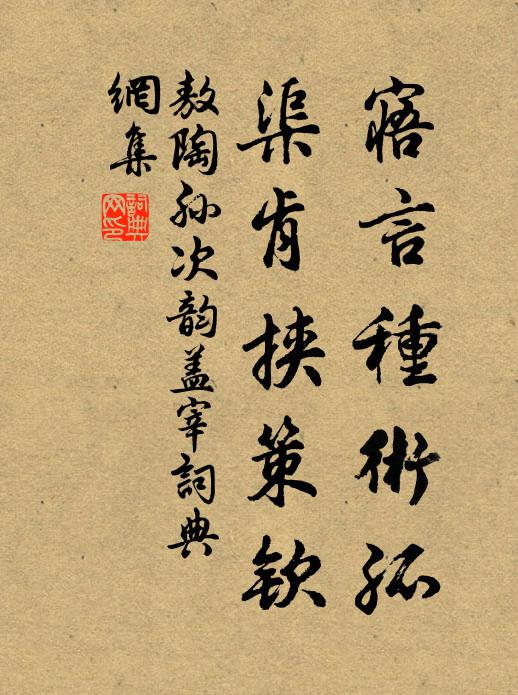 寤言種術孤
渠肯挾策欽
敖陶孫次韵蓋宰詞典
網集
詞典
网印